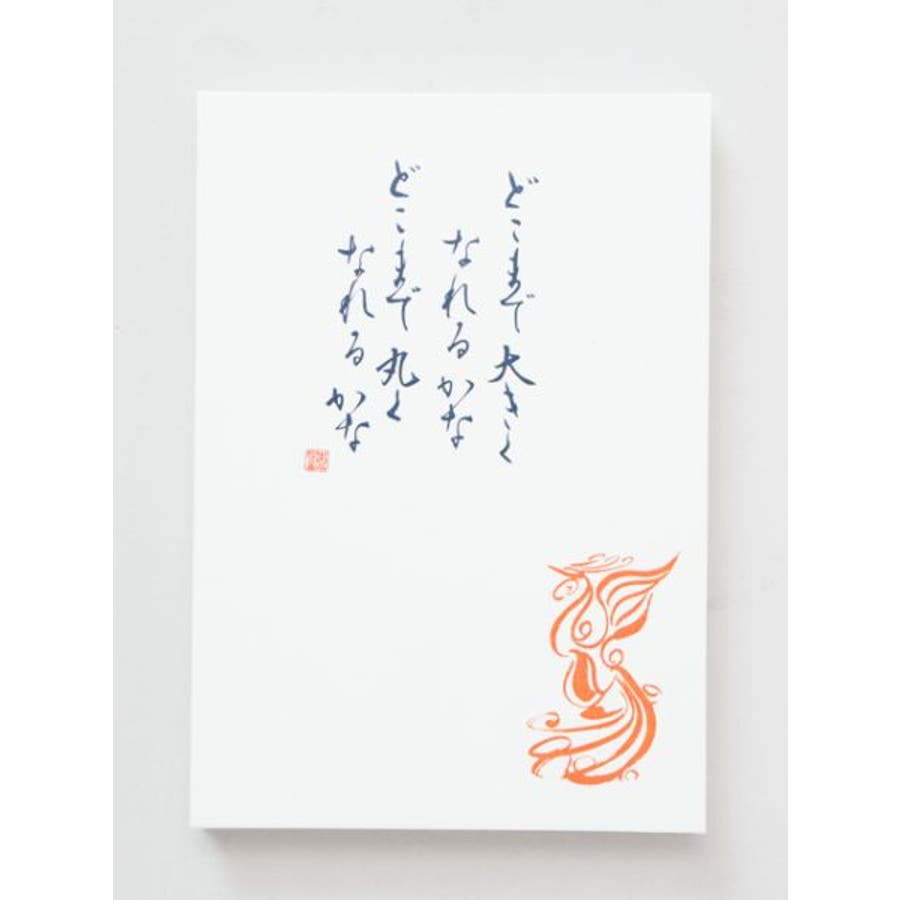 どこまで大きく
なれるかな
どこまで丸く
なれるかな